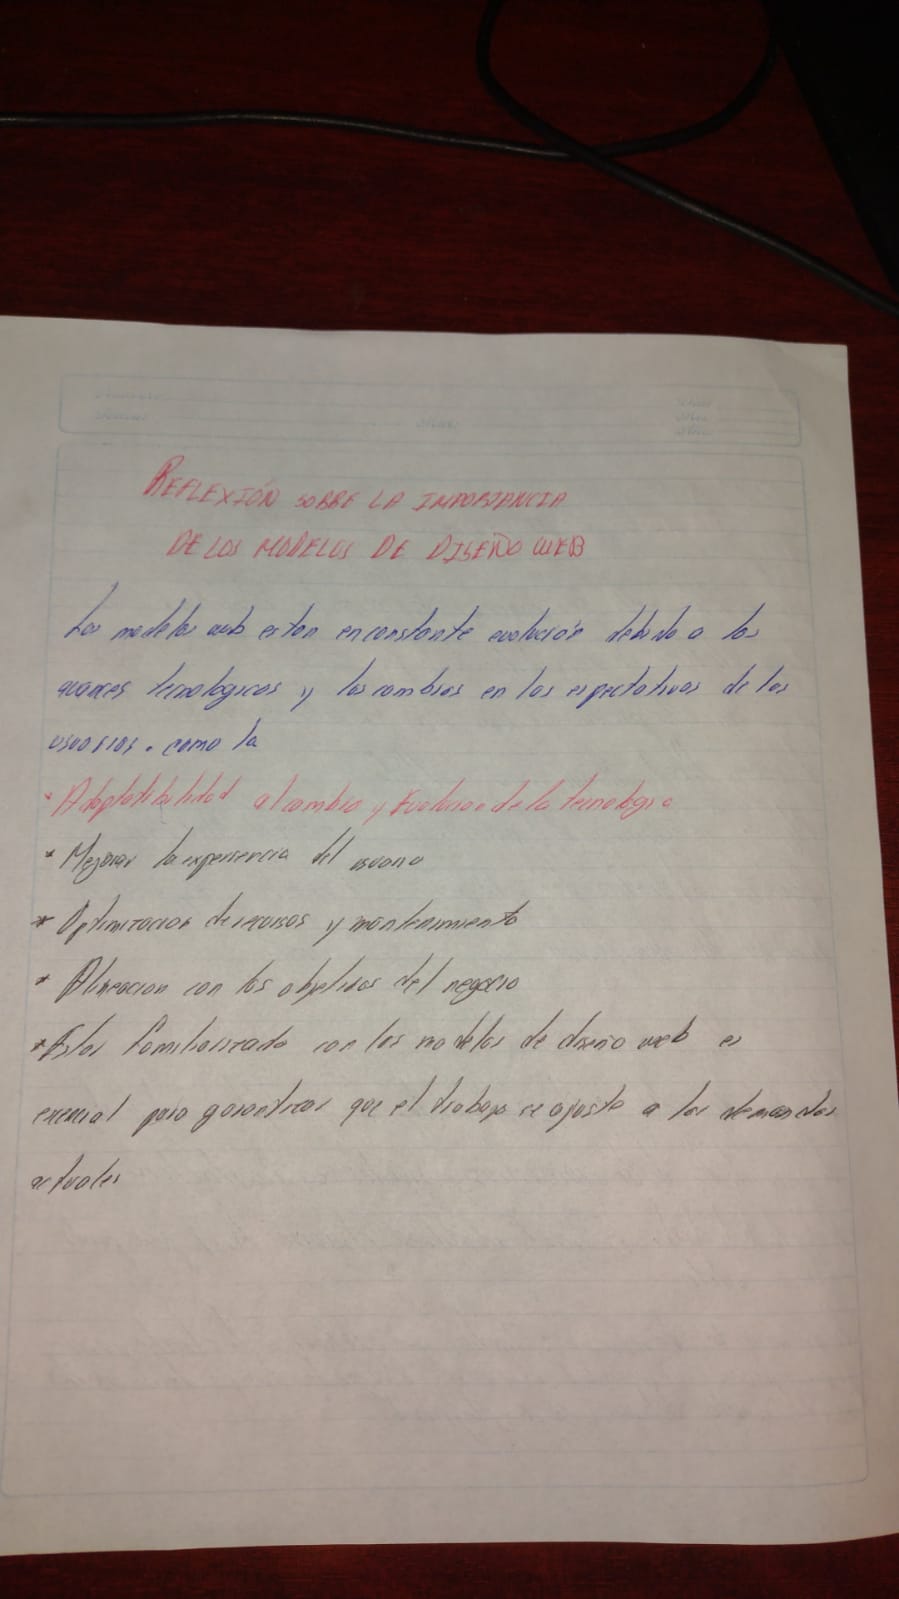 REFLEXIÓN SOBRE LA IMPORTANCIA
DE LOS MODELOS DE DISEÑO WEB
Los modelos web estan en constante evolución debido a los
avances tecnologicos y los cambios en las expectativas de los
usuarios. como la
* Adaptatibilidad al cambio y Evolucion de la tecnologia
* Mejorar la experiencia del usuario
* Optimizacion de recursos y mantenimiento
* Alineacion con los objetivos del negocio
* Estar familiarizado con los modelos de diseño web es
esencial para garantizar que el trabajo se ajusta a las demandas
actuales